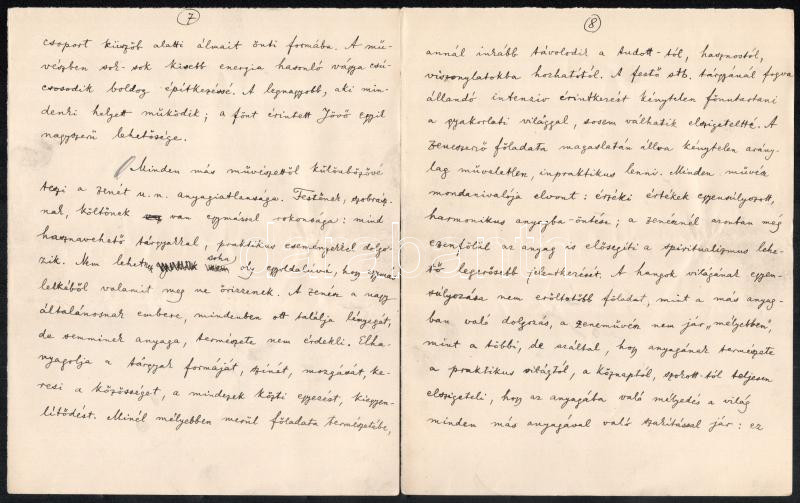 7
csoport küszöb alatti álmait önti formába. A mű-
vészben sok-sok kisebb energia hasonló vágya csú-
csosodik boldog építkezéssé. A legnagyobb, aki min-
denki helyett működik; a fönt érintett Jövő egyik
nagyszerű lehetősége.
Minden más művészettől különbözővé
teszi a zenét u.n. anyagiatlansága. Festőnek, szobrász-
nak, költőnek van egymással rokonsága: mind
hasznavehető tárgyakkal, praktikus eseményekkel dolgo-
zik. Nem lehet soha oly egyoldalúvá, hogy egyma-
letkéből valamit meg ne őrizzenek. A zenén a nagy
általánosnak embere, mindenben ott találja lényegét,
de semminek anyaga, természete nem érdekli. Elha-
nyagolja a tárgyak formáját, színét, mozgását, ke-
resi a közösséget, a mindezek közti egyezést, kiegyen-
lítődést. Minél mélyebben merül föladata természetébe,
8
annál inkább távolodik a tudott-tól, hasznostól,
viszonylatokba hozhatótól. A festő stb. tárgyánál fogva
állandó intenzív érintkezést kénytelen fönntartani
a gyakorlati világgal, sosem válhatik elszigeteltté. A
zeneszerző föladata magaslatán állva kénytelen arány-
lag műveletlen, inpraktikus lenni. Minden művén
mondanivalója elvont: érzéki értékek egyensúlyozott,
harmonikus anyagba-öntése; a zenénél azonban még
ezenfölül az anyag is elősegíti a spiritualizmus lehe-
tő legerősebb jelentkezését. A hangok világának egyen-
súlyozása nem erőltetőbb föladat, mint a más anyag-
ban való dolgozás, a zeneművész nem jár „mélyebben”,
mint a többi, de azáltal, hogy anyagának természete
a praktikus világtól, a köznaptól, szokott-tól teljesen
elszigeteli, hogy az anyagába való mélyedés a világ
minden más anyagával való szakítással jár: ez